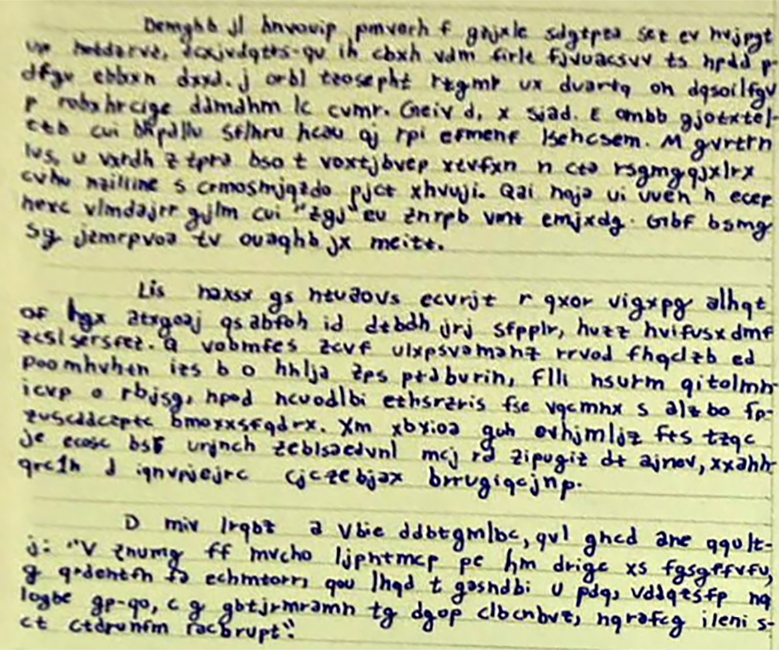 Demghb jl hnvovip pmverh f gnjxle sdgtpea set ev hvjpgt
up hotdarvz, dcxjvdqtts-qu ih cbxh vdm firle fjvuacsvv ts hpdd p-
dfgv ebbxn dxxd. j orbl teosepht rzgmr ux dvartq oh dqsoilfgv
p robxhrcige ddmdhm lc cvmr. Geiv d, x sjad. E ombb gjotxtel-
ctb cui bhpdllu sflhru hcau qj rpi efmenf lsehcsem. M gvrtrn
lvs, u vxrdh z tpra bso t voxtjbvep xtvfxn n cta rsgmgqjxlrx
cvhu nzilline s crmosmjqzdo pjct xhvuji. Qai naja ui vven h ecep
hexc vlmdajrr gjlm cui "zgj" eu znrpb vmt emjxdg. Gibf bsmg
sg jzmrpvoa tv ouaqhb jx meitt.
Lis naxsx gs ntuaovs ecvrjt r qxor vigxpg alhqt
of hgx atxgoaj qsabfoh id dtbdh jrj sfpplr, huzz hvifusxdmf
zcslsersfez. a vobmfes zcvf ulxpsvamahz rrvod fhqclzb ed
poomhvhen izs b o hhlja zps ptaburin, flli nsurm qitolmn
icvp o rbjsg, npod ncuodlbi ethsrzris fse vqcmnx s alzbo fp-
zuscddczptc bmoxxsfqdrx. Xm xbyioa guh ovhjmljz fts tzqc
je ecosc bsf urjnch zeblsaedvnl mcj ra zipugiz dt ajnov, xxahh-
qrclh d iqnvpjejrc cjczebjax brrugiqcjnp.
D miv lrqbz a vbie ddbtgmlbc, qvl ghcd ane qqult-
j: "V znumg ff mvcho ljphtmcp pe hm drige xs fgsgffvfu,
g qrdentfn fa echmtorr, qou lhqd t gasndbi u pdq, vddqzsfp nq
logbe gp-qo, c g gbtjrmramn tg dgop clbcnbvt, nqrafcg ileni s-
ct ctdrunfm racbrupt".